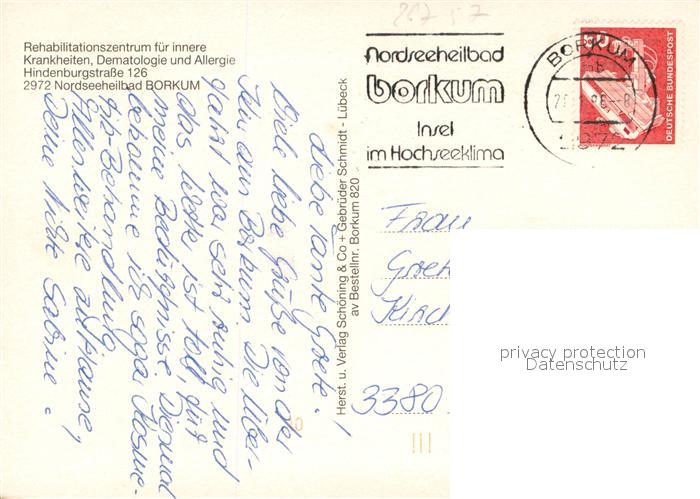 Rehabilitationszentrum für innere
Krankheiten, Dematologie und Allergie
Hindenburgstraße 126
2972 Nordseeheilbad BORKUM
Liebe Tante Grete!
Viele liebe Grüße von der
Insel Borkum. Die Über-
fahrt war sehr ruhig und
das Wetter ist toll für
meine Bedürfnisse. Diesmal
bekomme ich sogar Kosme-
tik-Behandlung
Alles weitere zuhause,
Deine Nichte Sabine.
Herst. u. Verlag Schöning & Co + Gebrüder Schmidt - Lübeck
av Bestellnr. Borkum 820
Nordseeheilbad
borkum
Insel
im Hochseeklima
BORKUM
2972
DEUTSCHE BUNDESPOST
Frau
Grete
Kirch
3380
privacy protection
Datenschutz